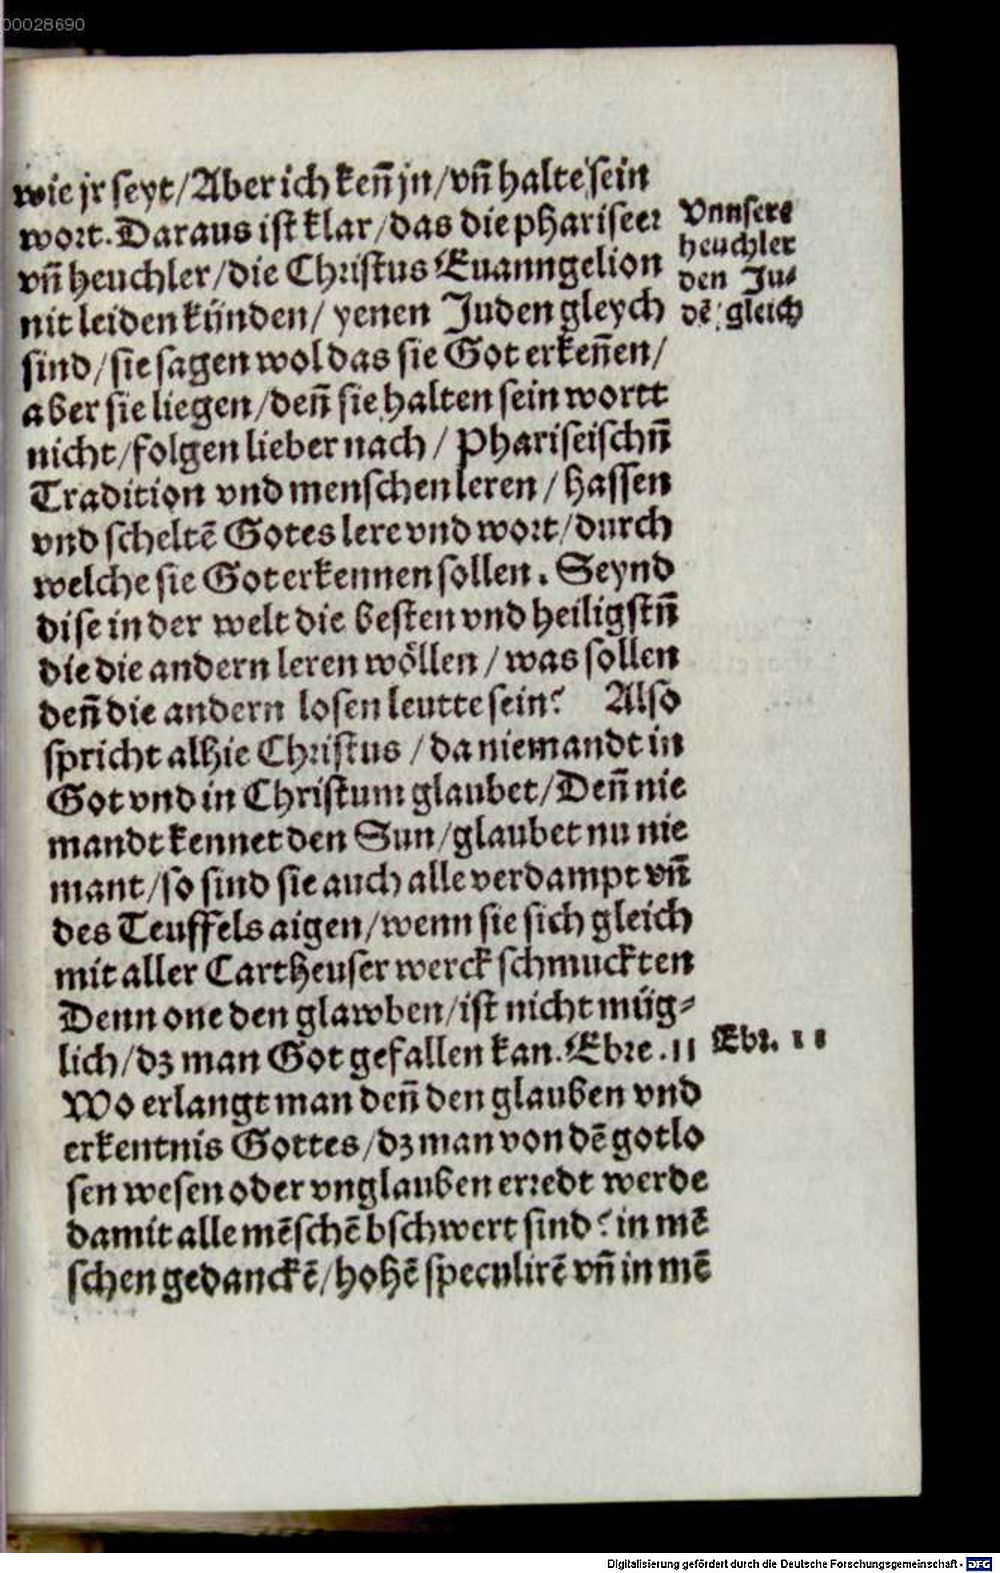 00028690
wie jr seyt/Aber ich keñ jn/vñ halte sein
wort. Daraus ist klar/das die phariseer
vñ heuchler/die Christus Euanngelion
nit leiden künden/ yenen Juden gleych
sind/sie sagen wol das sie Got erkeñen/
aber sie liegen/deñ sie halten sein wortt
nicht/folgen lieber nach/ Phariseischñ
Tradition vnd menschen leren/hassen
vnd scheltē Gotes lere vnd wort/durch
welche sie Got erkennen sollen. Seynd
dise in der welt die besten vnd heiligstñ
die die andern leren wöllen/was sollen
deñ die andern losen leutte sein? Also
spricht alhie Christus/da niemandt in
Got vnd in Christum glaubet/Deñ nie
mandt kennet den Sun/glaubet nu nie
mant/so sind sie auch alle verdampt vñ
des Teuffels aigen/wenn sie sich gleich
mit aller Cartheuser werck schmuckten
Denn one den glawben/ist nicht müg⸗
lich/dz man Got gefallen kan. Ebre. 11
Wo erlangt man deñ den glauben vnd
erkentnis Gottes/dz man von dē gotlo
sen wesen oder vnglauben erredt werde
damit alle mēschē bschwert sind? in mē
schen gedanckē/hohē speculirē vñ in mē
Vnnsere
heuchler
den Ju⸗
dē gleich
Ebr. 11
Digitalisierung gefördert durch die Deutsche Forschungsgemeinschaft - DFG